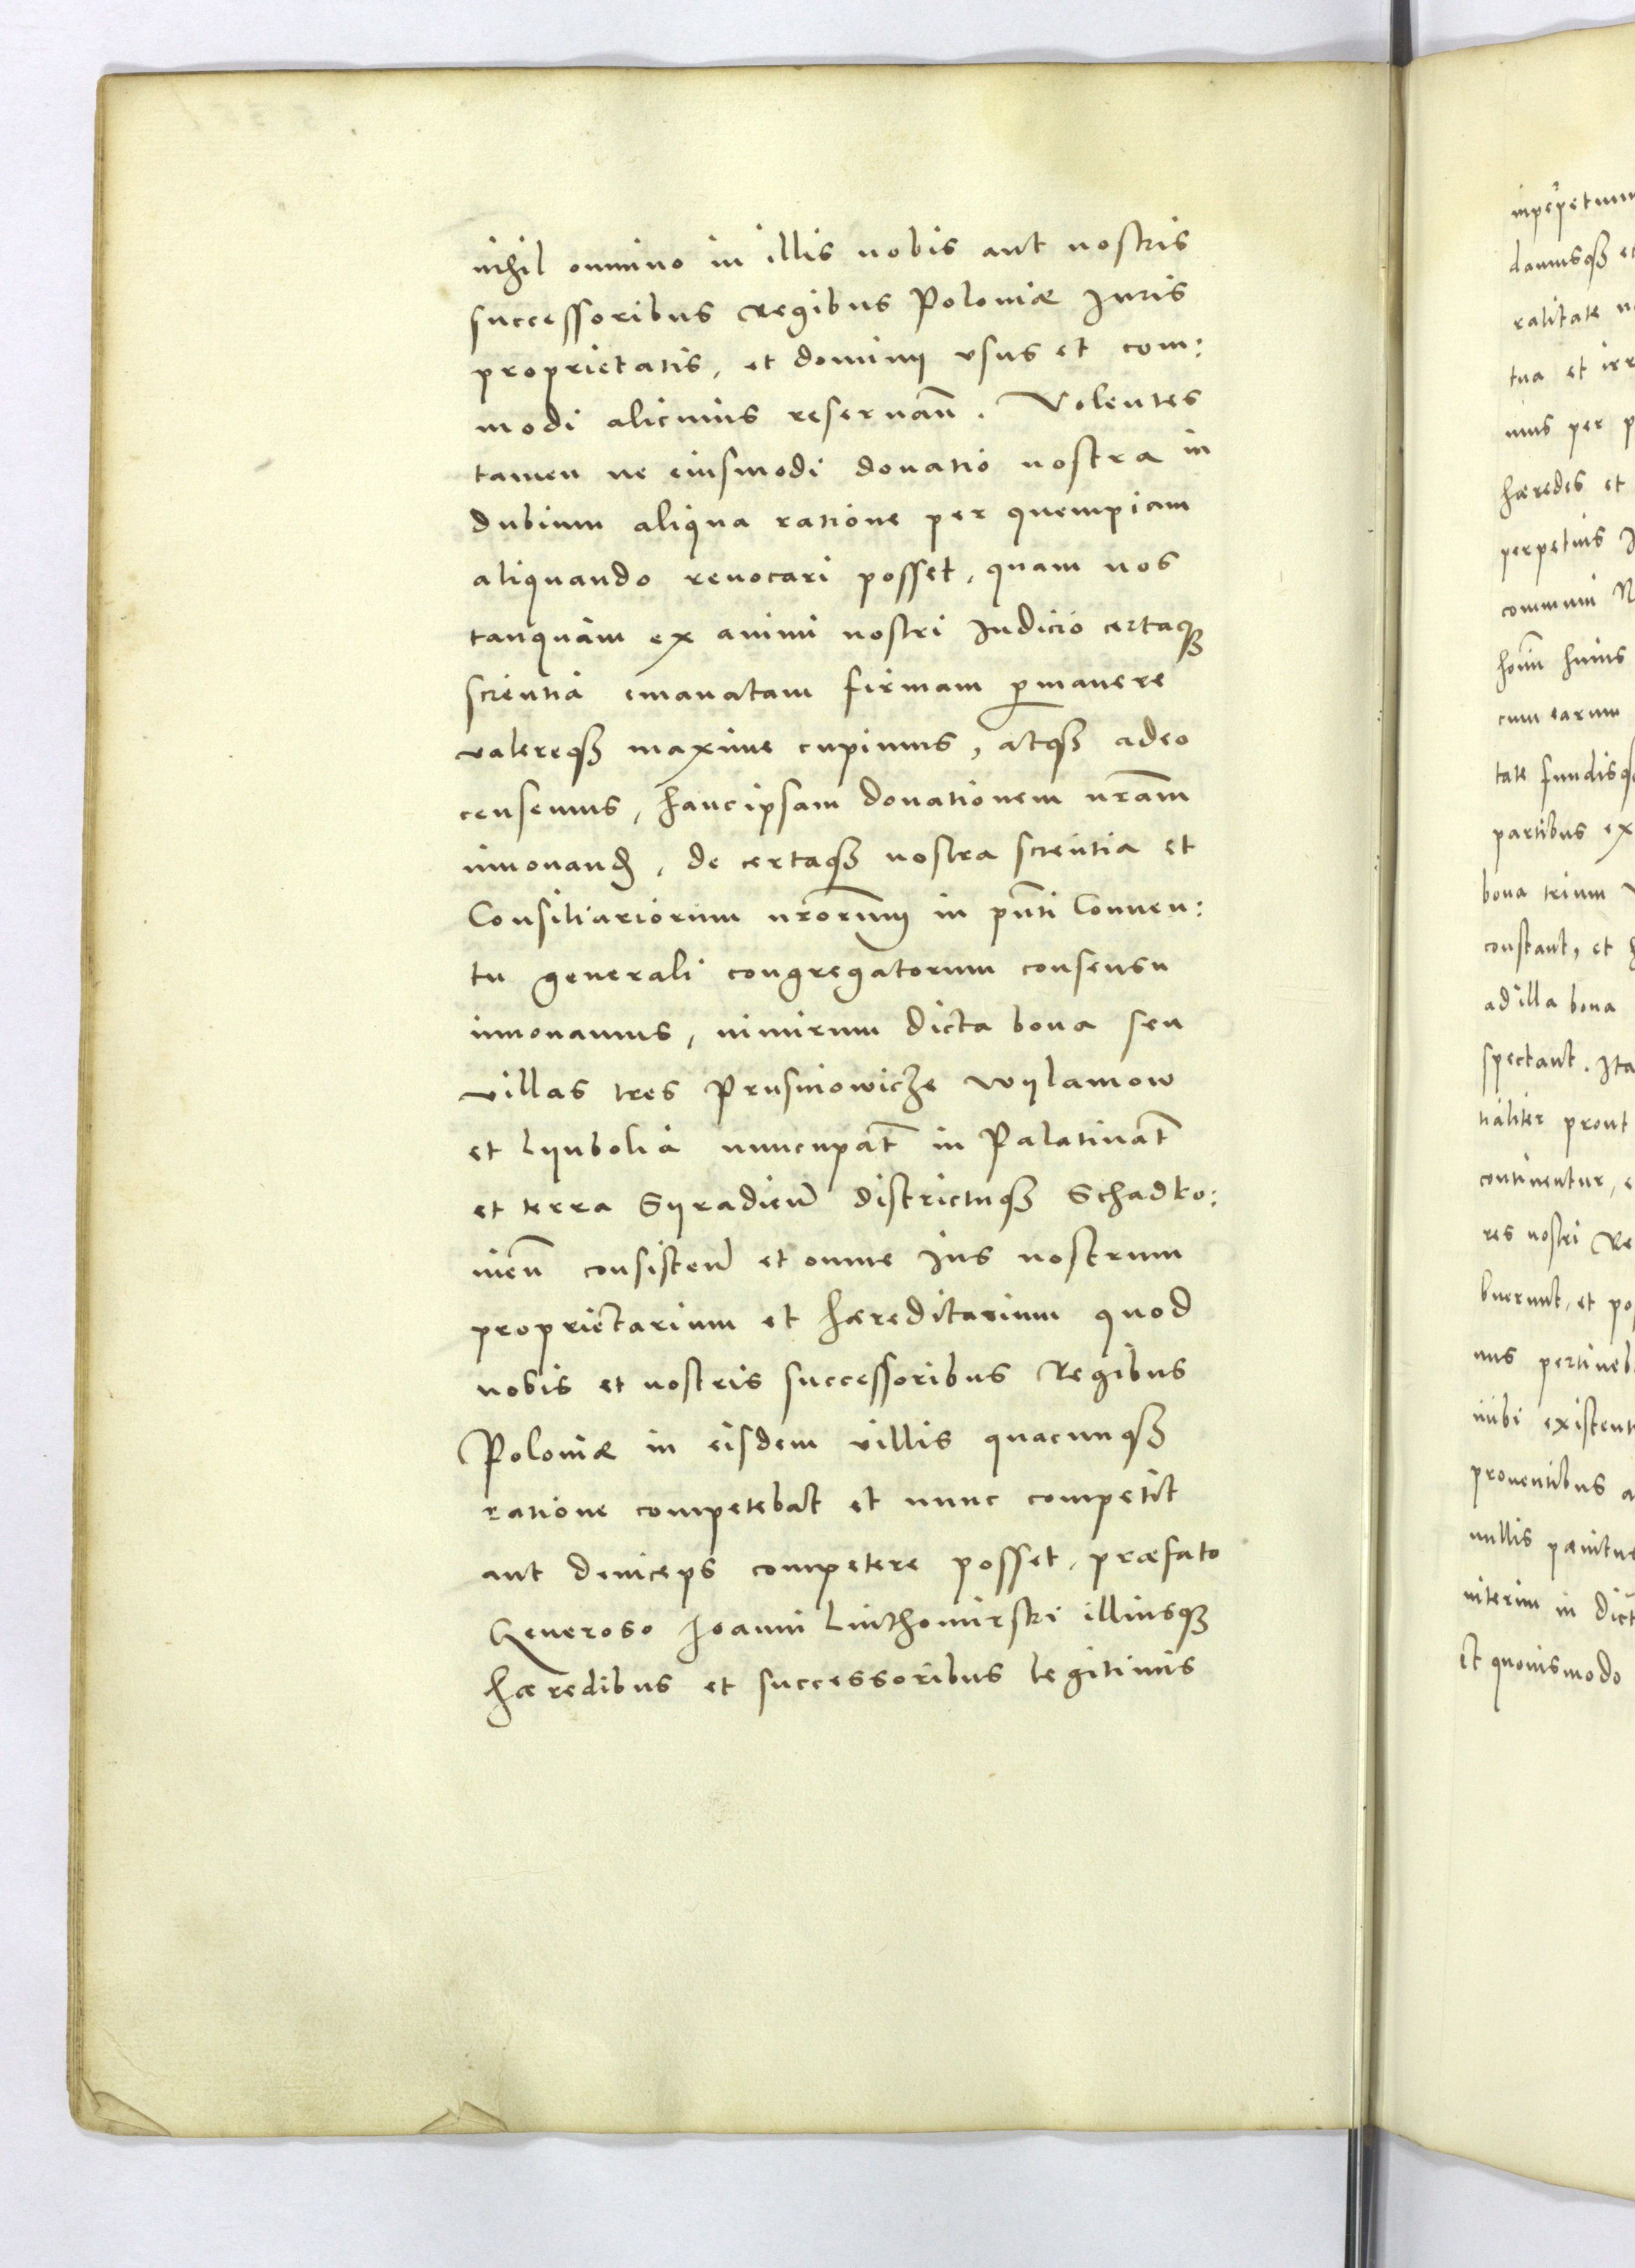 nihil omnino in illis nobis aut nostris
successoribus Regibus Poloniæ Iuris
proprietatis, et dominij vsus et com:
modi alicuius reseruañ. Volentes
tamen ne eiusmodi donatio nostra in
dubium aliqua ratione per quempiam
aliquando reuocari posset, quam nos
tanquam ex animi nostri Iudicio certaqꝫ
scientia emanatam firmam ꝑmanere
valereqꝫ maxime cupimus, atqꝫ adeo
censemus, hanc ipsam donationem nr̃am
innouand, de certaqꝫ nostra scientia et
Consiliariorum nr̃orum in pñti Conuen:
tu generali congregatorum consensu
innouamus, nimirum dicta bona seu
villas tres Prusinowicze Wylamow
et Lynbolia nuncupat̃ in Palatinat̃
et terra Syradień districtuqꝫ Schadko:
uień consisteñ et omne Ius nostrum
proprietarium et hæreditarium quod
nobis et nostris successoribus Regibus
Poloniæ in eisdem villis quacunqꝫ
ratione competebat et nunc competit
aut deinceps competere posset, præfato
Generoso Ioanni Linthomirski illiusqꝫ
hæredibus et successoribus legitimis
inperpetuum
damusqꝫ et
ralitate
tua et irr
mus per p
hæredes et
perpetuis
communi
huius
cum earum
tate fundisqꝫ
partibus ex
bona trium
constant, et
ad illa bona
spectant. Ita
tialiter prout
continentur,
res nostri Re
buerunt, et po
nus pertineb
inibi existent
prouentibus a
nullis pænitus
interim in dict
et quouismodo